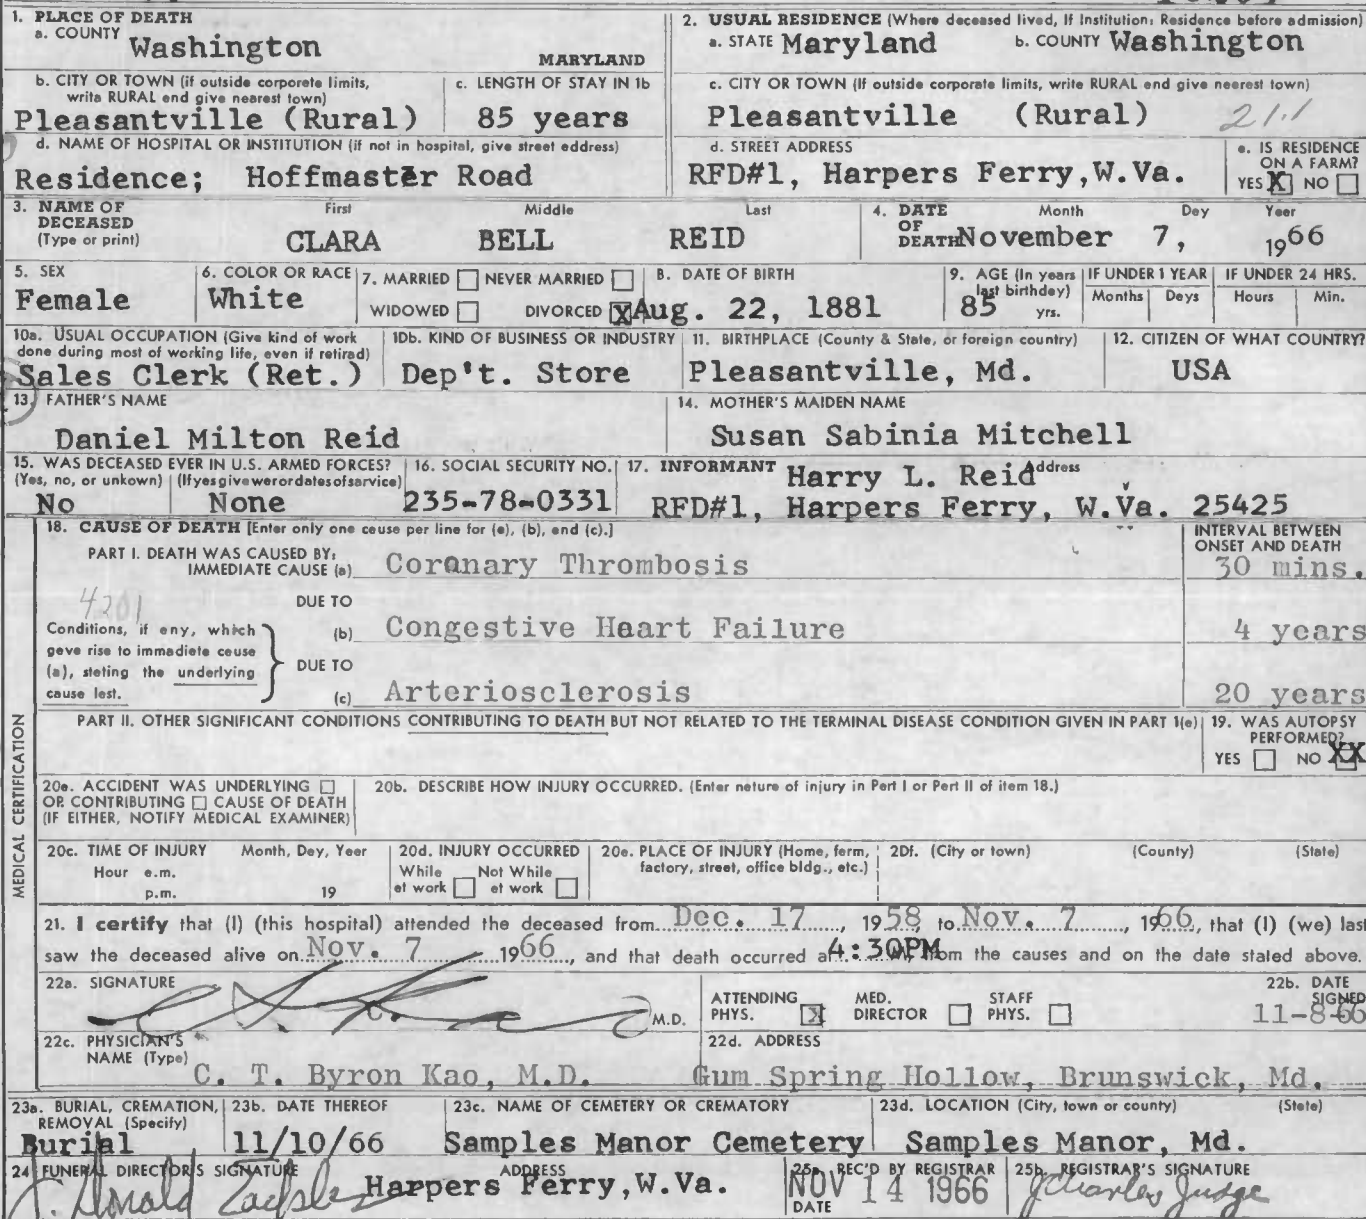 1. PLACE OF DEATH
a. COUNTY Washington MARYLAND
2. USUAL RESIDENCE (Where deceased lived, If Institution: Residence before admission)
a. STATE Maryland b. COUNTY Washington
b. CITY OR TOWN (if outside corporate limits, write RURAL and give nearest town)
Pleasantville (Rural)
c. LENGTH OF STAY IN 1b
85 years
c. CITY OR TOWN (If outside corporate limits, write RURAL and give nearest town)
Pleasantville (Rural) 21.1
d. NAME OF HOSPITAL OR INSTITUTION (if not in hospital, give street address)
Residence; Hoffmaster Road
d. STREET ADDRESS
RFD#1, Harpers Ferry, W.Va.
e. IS RESIDENCE ON A FARM?
YES X NO
3. NAME OF DECEASED (Type or print)
First Middle Last
CLARA BELL REID
4. DATE OF DEATH Month Day Year
November 7, 1966
5. SEX
Female
6. COLOR OR RACE
White
7. MARRIED NEVER MARRIED
WIDOWED DIVORCED X
8. DATE OF BIRTH
Aug. 22, 1881
9. AGE (In years last birthday)
85 yrs.
IF UNDER 1 YEAR
Months Days
IF UNDER 24 HRS.
Hours Min.
10a. USUAL OCCUPATION (Give kind of work done during most of working life, even if retired)
Sales Clerk (Ret.)
10b. KIND OF BUSINESS OR INDUSTRY
Dep't. Store
11. BIRTHPLACE (County & State, or foreign country)
Pleasantville, Md.
12. CITIZEN OF WHAT COUNTRY?
USA
13. FATHER'S NAME
Daniel Milton Reid
14. MOTHER'S MAIDEN NAME
Susan Sabinia Mitchell
15. WAS DECEASED EVER IN U.S. ARMED FORCES?
(Yes, no, or unkown) (If yes give war or dates of service)
No None
16. SOCIAL SECURITY NO.
235-78-0331
17. INFORMANT Address
Harry L. Reid,
RFD#1, Harpers Ferry, W.Va. 25425
18. CAUSE OF DEATH [Enter only one cause per line for (a), (b), and (c).]
INTERVAL BETWEEN ONSET AND DEATH
PART I. DEATH WAS CAUSED BY:
IMMEDIATE CAUSE (a) Coronary Thrombosis 30 mins.
4201
Conditions, if any, which gave rise to immediate cause (a), stating the underlying cause last.
DUE TO
(b) Congestive Heart Failure 4 years
DUE TO
(c) Arteriosclerosis 20 years
PART II. OTHER SIGNIFICANT CONDITIONS CONTRIBUTING TO DEATH BUT NOT RELATED TO THE TERMINAL DISEASE CONDITION GIVEN IN PART 1(a)
19. WAS AUTOPSY PERFORMED?
YES NO XX
MEDICAL CERTIFICATION
20a. ACCIDENT WAS UNDERLYING
OR CONTRIBUTING CAUSE OF DEATH
(IF EITHER, NOTIFY MEDICAL EXAMINER)
20b. DESCRIBE HOW INJURY OCCURRED. (Enter nature of injury in Part I or Part II of item 18.)
20c. TIME OF INJURY Month, Day, Year
Hour a.m.
p.m. 19
20d. INJURY OCCURRED
While at work Not While at work
20e. PLACE OF INJURY (Home, farm, factory, street, office bldg., etc.)
20f. (City or town) (County) (State)
21. I certify that (I) (this hospital) attended the deceased from Dec. 17, 1958, to Nov. 7, 1966, that (I) (we) last
saw the deceased alive on Nov. 7 1966, and that death occurred at 4:30PM from the causes and on the date stated above.
22a. SIGNATURE
M.D.
ATTENDING PHYS. X MED. DIRECTOR STAFF PHYS.
22b. DATE SIGNED
11-8-66
22c. PHYSICIAN'S NAME (Type)
C. T. Byron Kao, M.D.
22d. ADDRESS
Gum Spring Hollow, Brunswick, Md.
23a. BURIAL, CREMATION, REMOVAL (Specify)
Burial
23b. DATE THEREOF
11/10/66
23c. NAME OF CEMETERY OR CREMATORY
Samples Manor Cemetery
23d. LOCATION (City, town or county) (State)
Samples Manor, Md.
24 FUNERAL DIRECTOR'S SIGNATURE ADDRESS
Donald Harpers Ferry, W.Va.
25a. REC'D BY REGISTRAR
NOV 14 1966
DATE
25b. REGISTRAR'S SIGNATURE
J Charles Judge